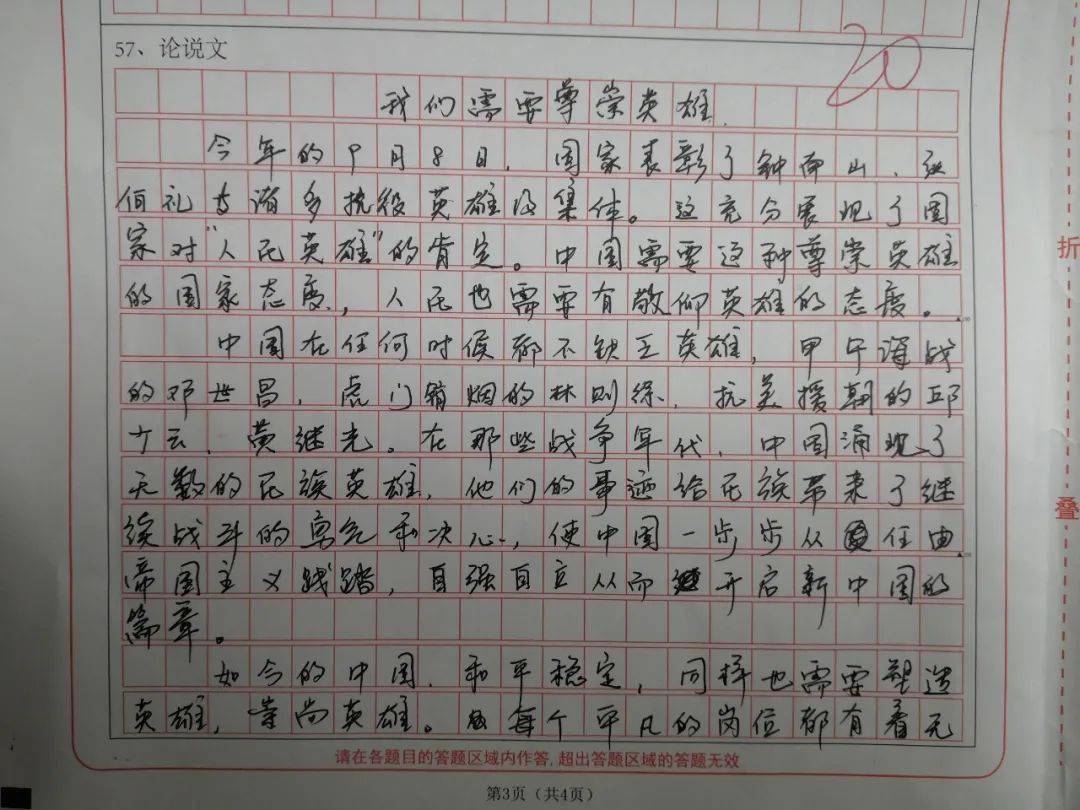 57、论说文
20
我们需要尊崇英雄.
今年的9月8日, 国家表彰了钟南山、张
伯礼与诸多抗役英雄及集体。这充分展现了国
家对"人民英雄"的肯定。中国需要这种尊崇英雄
的国家态度, 人民也需要有敬仰英雄的态度。
中国在任何时候都不缺乏英雄, 甲午海战
的邓世昌, 虎门销烟的林则徐, 抗美援朝的邱
少云、黄继光。在那些战争年代, 中国涌现了
无数的民族英雄, 他们的事迹给民族带来了继
续战斗的勇气和决心, 使中国一步步从任由
帝国主义践踏, 自强自立从而开启新中国的
篇章。
如今的中国, 和平稳定, 同样也需要塑造
英雄, 崇尚英雄。每个平凡的岗位都有着无
请在各题目的答题区域内作答,超出答题区域的答题无效
第3页(共4页)
折
叠